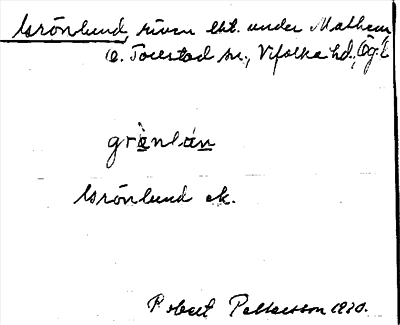 Grönlund, riven lht. under Mathem
Ö. Tollstad sn., Vifolka hd., Ög. l.
grànlán
Grönlund ek.
Robert Pettersson 1930.